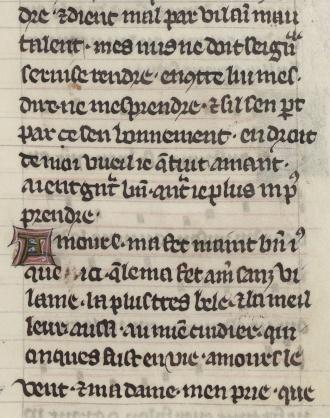 dre · ⁊ dient mal par vilain mau
talent · mes nuis ne doit seignᷣ
seruise rendre · encontre lui mes
dire ne mesprendre · ⁊ sil sen ꝑt
par ce sen bonnement · en droit
de moi vueil ie q̃ tuit amant ·
aient gñt bñ · qñt ie plus ni puis
prendre ·
Amours · ma fet maint bñ ius
que ici · q̃le ma fet amer sanz vi
lanie · la plus tres bele · ⁊ la meil
leur aussi · au mien cuidier · qui
onques fust en vie · amours le
veut · ⁊ ma dame · men prie · que